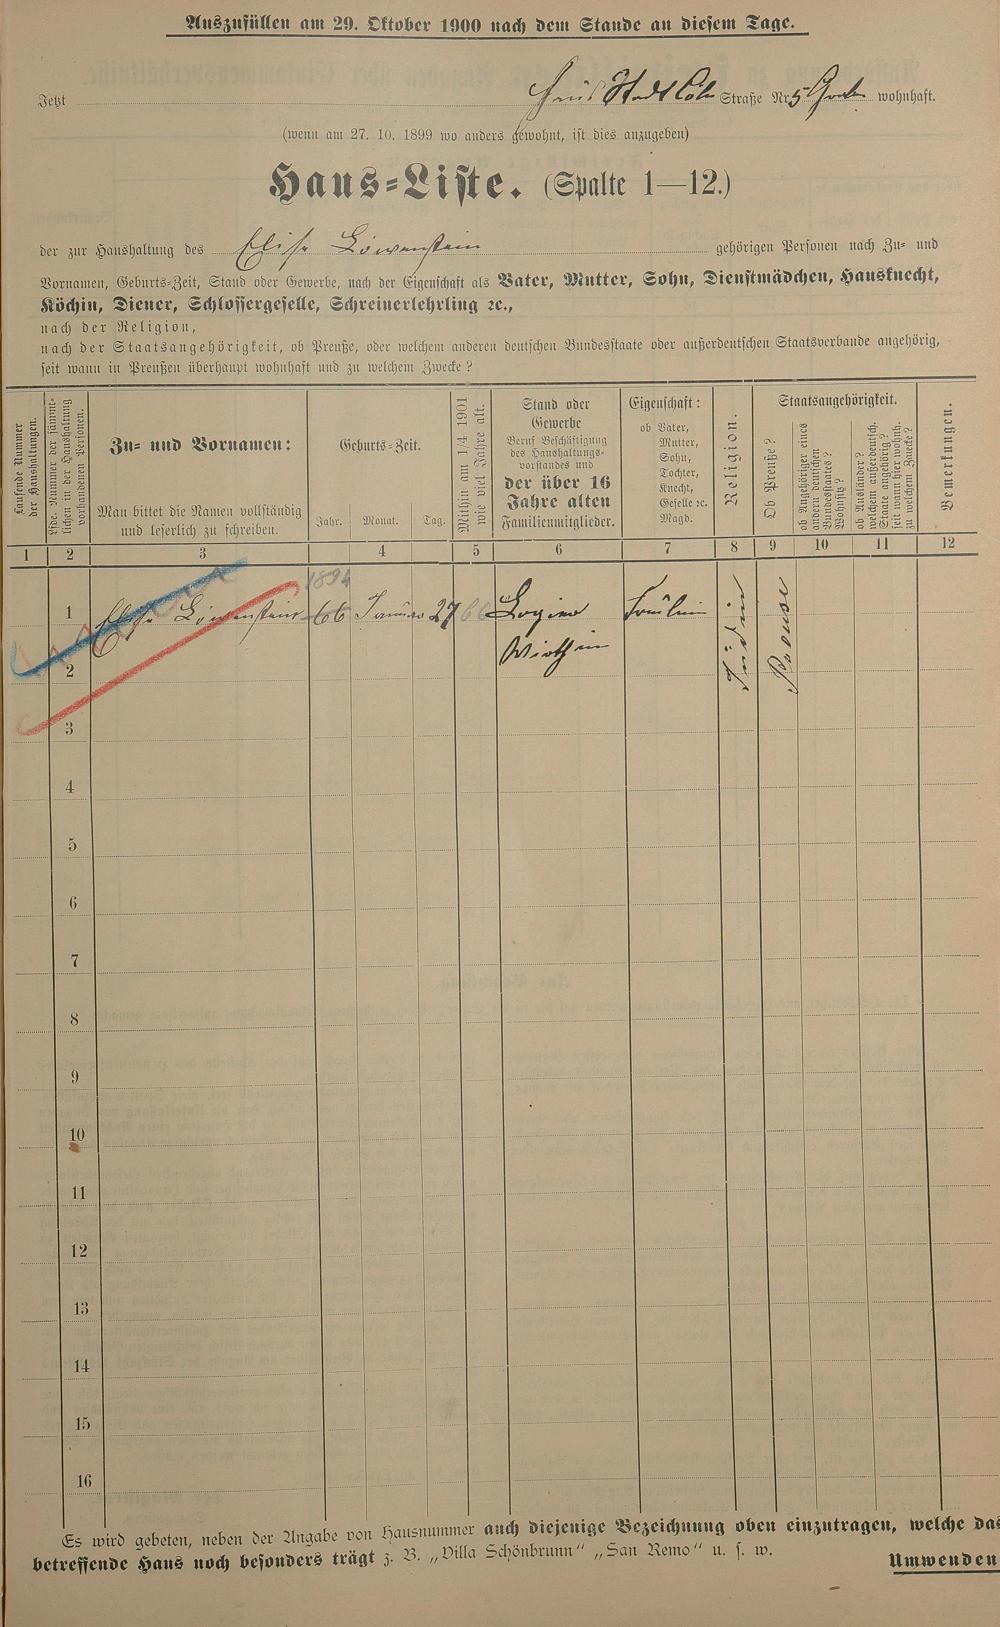 Auszufüllen am 29. Oktober 1900 nach dem Stande an diesem Tage.
Jetzt Haus Stadt Cöln Straße Nr. 5 wohnhaft.
(wenn am 27. 10. 1899 wo anders gewohnt, ist dies anzugeben)
Haus-Liste. (Spalte 1—12.)
der zur Haushaltung des Elise Löwenstein gehörigen Personen nach Zu- und
Vornamen, Geburts-Zeit, Stand oder Gewerbe, nach der Eigenschaft als Vater, Mutter, Sohn, Dienstmädchen, Hausknecht,
Köchin, Diener, Schlossergeselle, Schreinerlehrling ꝛc.,
nach der Religion,
nach der Staatsangehörigkeit, ob Preuße, oder welchem anderen deutschen Bundesstaate oder außerdeutschen Staatsverbande angehörig,
seit wann in Preußen überhaupt wohnhaft und zu welchem Zwecke?
Laufende Nummer
der Haushaltungen.
Lfde. Nummer der sämmt-
lichen in der Haushaltung
vorhandenen Personen.
Zu- und Vornamen:
Man bittet die Namen vollständig
und leserlich zu schreiben.
Geburts-Zeit.
Jahr. Monat. Tag.
Mithin am 1/4 1901
wie viel Jahre alt.
Stand oder
Gewerbe
Beruf Beschäftigung
des Haushaltungs-
vorstandes und
der über 16
Jahre alten
Familienmitglieder.
Eigenschaft:
ob Vater,
Mutter,
Sohn,
Tochter,
Knecht,
Geselle ꝛc.
Magd.
Religion.
Staatsangehörigkeit.
Ob Preuße?
ob Angehöriger eines
andern deutschen
Bundesstaates?
Wohnsitz?
ob Ausländer?
welchem außerdeutsch.
Staate angehörig?
seit wann hier wohnh.
zu welchem Zwecke?
Bemerkungen.
1 2 3 4 5 6 7 8 9 10 11 12
1894
1 Elise Löwenstein 66 Januar 27 Logier Fräulein Jüdin Preuße
Wirthin
2
3
4
5
6
7
8
9
10
11
12
13
14
15
16
Es wird gebeten, neben der Angabe von Hausnummer auch diejenige Bezeichnung oben einzutragen, welche das
betreffende Haus noch besonders trägt z. B. „Villa Schönbrunn“ „San Remo“ u. s. w.
Umwenden